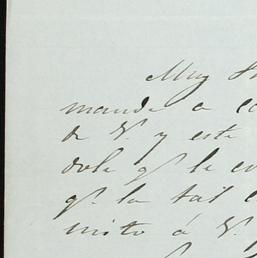 Muy
mande a
de V. y este
dole q.e le
q.e la tal
mito á V.